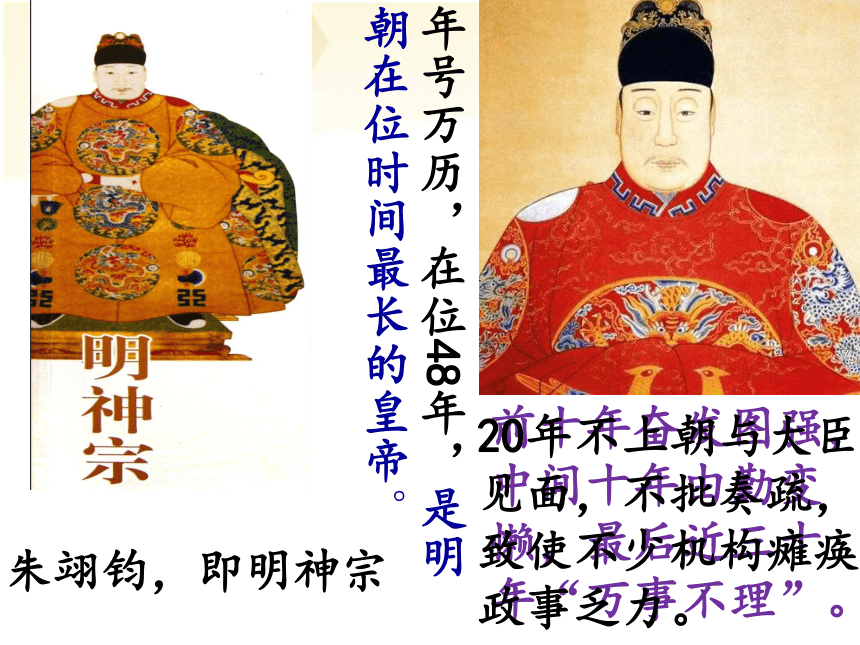 明神宗
朱翊钧，即明神宗
年号万历，在位48年，是明
朝在位时间最长的皇帝。
20年不上朝与大臣
见面，不批奏疏，
致使不少机构瘫痪
政事乏力。
前十年奋发图强，
中间十年由勤变
懒，最后近三十
年“万事不理”。